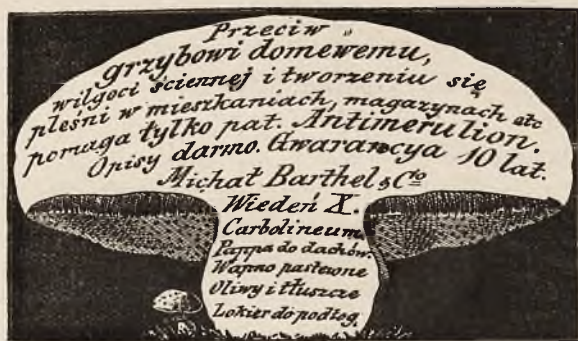 Przeciw
grzybowi domewemu,
wilgoci ściennej i tworzeniu się
pleśni w mieszkaniach, magazynach etc
pomaga tylko pat. Antimerulion.
Opisy darmo. Gwarancya 10 lat.
Michał Barthel & Cio
Wiedeń X.
Carbolineum
Pappa do dachów.
Wapno pastewne
Oliwy i tłuszcze
Lokier do podłog.